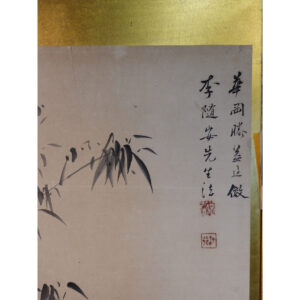 華岡勝善廷倣
李随安先生法